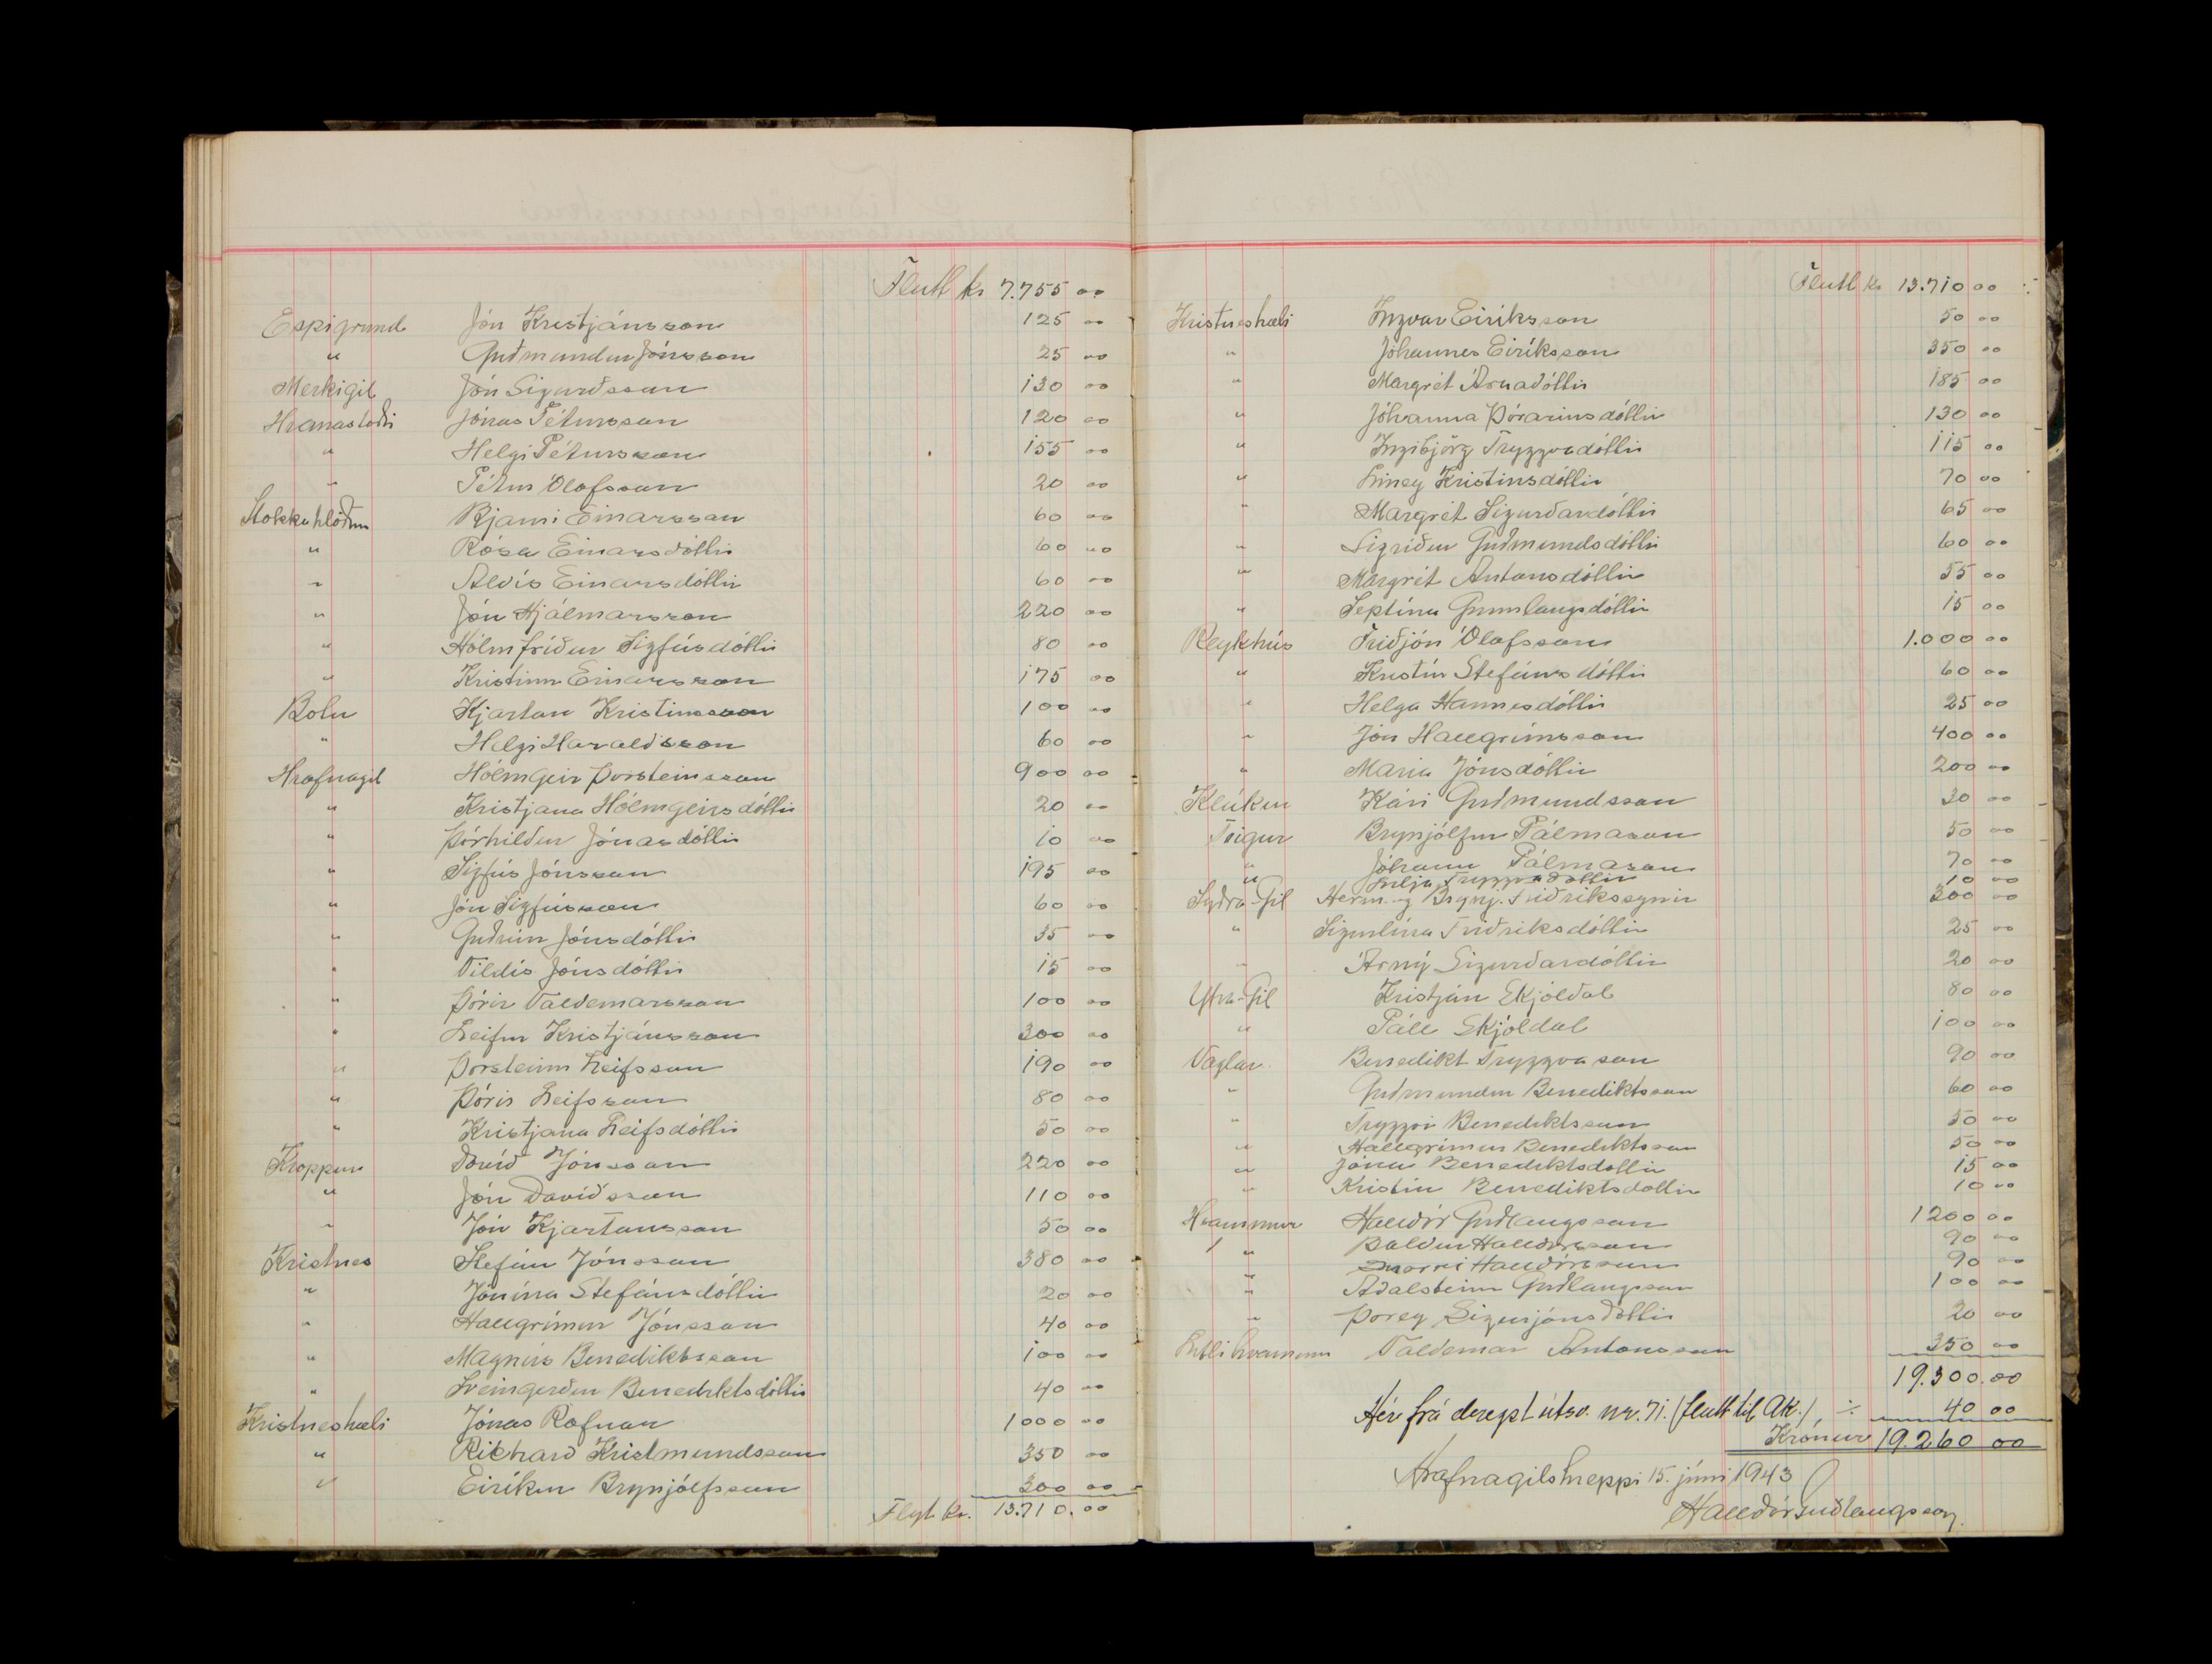 Flutt kr 7.755 00
Espigrund Jón Kristjánsson 125 00
" Guðmundur Jónsson 25 00
Merkigil Jón Sigurðsson 130 00
Hranastöðu Jónas Pétursson 120 00
" Helgi Pétursson 155 00
" Pétur Ólafsson 20 00
Stokkahlöðum Bjarni Einarsson 60 00
" Rósa Einarsdóttir 60 00
" Aldís Einarsdóttir 60 00
" Jón Hjálmarsson 220 00
" Hólmfríður Sigfúsdóttir 80 00
" Kristinn Einarsson 175 00
Botn Kjartan Kristinsson 100 00
" Helgi Haraldsson 60 00
Hrafnagil Hólmgeir Þorsteinsson 900 00
" Kristjana Hólmgeirsdóttir 20 00
" Þórhildur Jónasdóttir 10 00
" Sigfús Jónsson 195 00
" Jón Sigfússon 60 00
" Guðrún Jónsdóttir 35 00
" Vildís Jónsdóttir 15 00
" Þórir Valdemarsson 100 00
" Leifur Kristjánsson 300 00
" Þorsteinn Leifsson 190 00
" Þórir Leifsson 80 00
" Kristjana Leifsdóttir 50 00
Kroppur Davíð Jónsson 220 00
" Jón Davíðsson 110 00
" Jón Kjartansson 50 00
Kristnes Stefán Jónsson 380 00
" Jónína Stefánsdóttir 20 00
" Hallgrímur Jónsson 40 00
" Magnús Benediktsson 100 00
" Sveingerður Benediktsdóttir 40 00
Kristneshæli Jónas Rafnar 1000 00
" Richard Kristmundsson 350 00
" Eiríkur Brynjólfsson 300 00
Flyt kr. 13.710.00
Flutt kr 13.710 00
Kristneshæli Ingvar Eiríksson 50 00
" Jóhannes Eiríksson 350 00
" Margrét Árnadóttir 185 00
" Jóhanna Þórarinsdóttir 130 00
" Ingibjörg Tryggvadóttir 115 00
" Liney Kristinsdóttir 70 00
" Margrét Sigurðardóttir 65 00
" Sigríður Guðmundsdóttir 60 00
" Margrét Antonsdóttir 55 00
" Septína Gunnlaugsdóttir 15 00
Reykhús Friðjón Ólafsson 1.000 00
" Kristín Stefánsdóttir 60 00
" Helga Hannesdóttir 25 00
" Jón Hallgrímsson 400 00
" María Jónsdóttir 200 00
Klúkur Kári Guðmundsson 30 00
Teigur Brynjólfur Pálmason 50 00
" Jóhann Pálmason 70 00
" Lilja Tryggvadóttir 10 00
Syðra-Gil Herm. og Brynj. Friðrikssynir 300 00
" Sigurlína Friðriksdóttir 25 00
" Árný Sigurðardóttir 20 00
Ytra-Gil Kristján Skjóldal 80 00
" Páll Skjóldal 100 00
Vaglar Benedikt Tryggvason 90 00
" Guðmundur Benediktsson 60 00
" Tryggvi Benediktsson 50 00
" Hallgrímur Benediktsson 50 00
" Jóna Benediktsdóttir 15 00
" Kristín Benediktsdóttir 10 00
Hvammur Halldór Guðlaugsson 1200 00
" Baldur Halldórsson 90 00
" Snorri Halldórsson 90 00
" Aðalsteinn Guðlaugsson 100 00
" Þorey Sigurjónsdóttir 20 00
Litlihvammur Valdemar Antonsson 350 00
19.300.00
Hér frá dregst útsv. nr. 71. (flutt til Ak.) ÷ 40 00
Krónur 19.260 00
Hrafnagilshreppi 15. júní 1943
Halldór Guðlaugsson